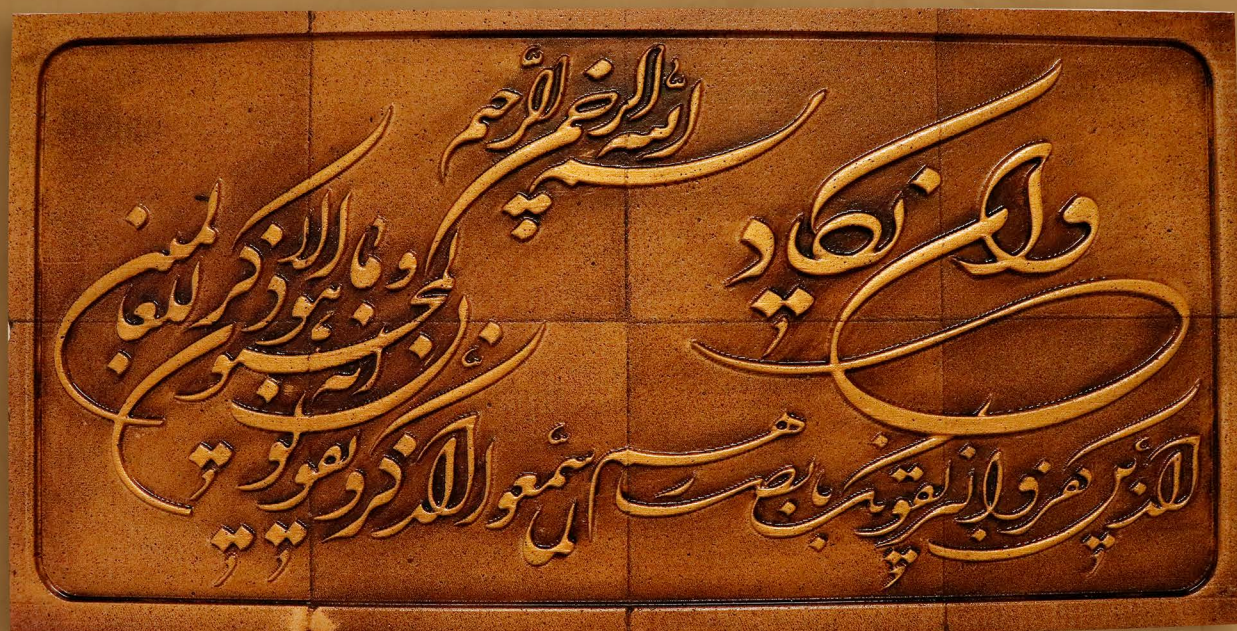 بسم الله الرحمن الرحیم
وان یکاد
الذین کفروا لیزلقونک بابصارهم لما سمعوا الذکر و یقولون
انه لمجنون و ما هو الا ذکر للعالمین